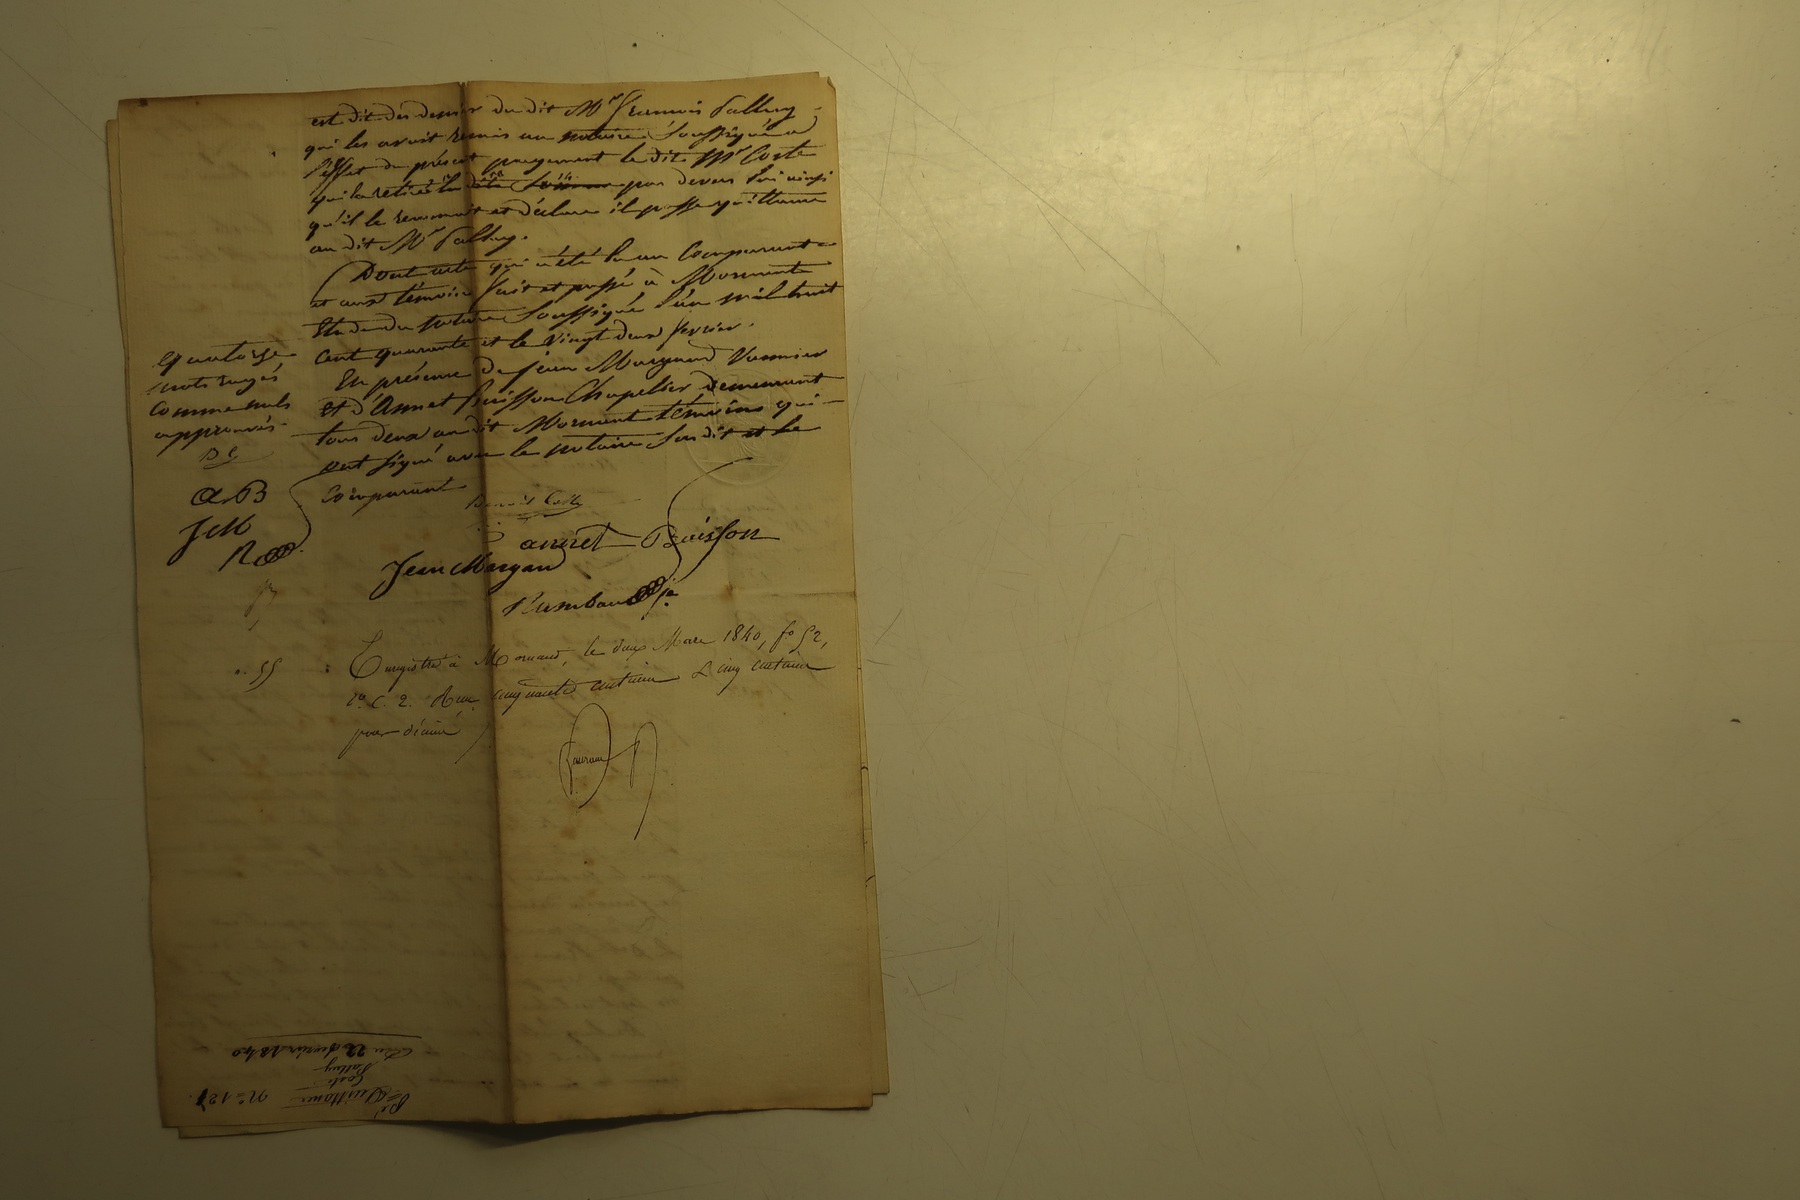 est dit des deniers du dit Mr François Palluy
qui les avoit remis au notaire soussigné a
l'effet du présent payement le dit Mr Coste
qui la retirée par devers lui ainsi
qu'il le reconnoit et déclare il passe quittance
au dit Mr Palluy.
Dont acte qui a été lu au Comparant
et aux témoins fait et passé à Mornant
Etude du notaire soussigné l'an mil huit
Cent quarante et le vingt deux fevrier.
En présence de Jean Margand Vannier
et d'Annet Buisson Chapelier demeurant
tous deux au dit Mornant témoins qui
ont signé avec le notaire susdit et le
Comparant
quatorze
mots rayés
comme nuls
approuvés
BC
A.B
JM
R
Benoit Coste
annet Buisson
Jean Margand
Rambaud
Enregistré à Mornant, le deux Mars 1840, fo 52,
vo C. 2. Reçu cinquante centimes & cinq centimes
pour décime
.. 55
Quittance No 121
Coste
Palluy
Du 22 fevrier 1840